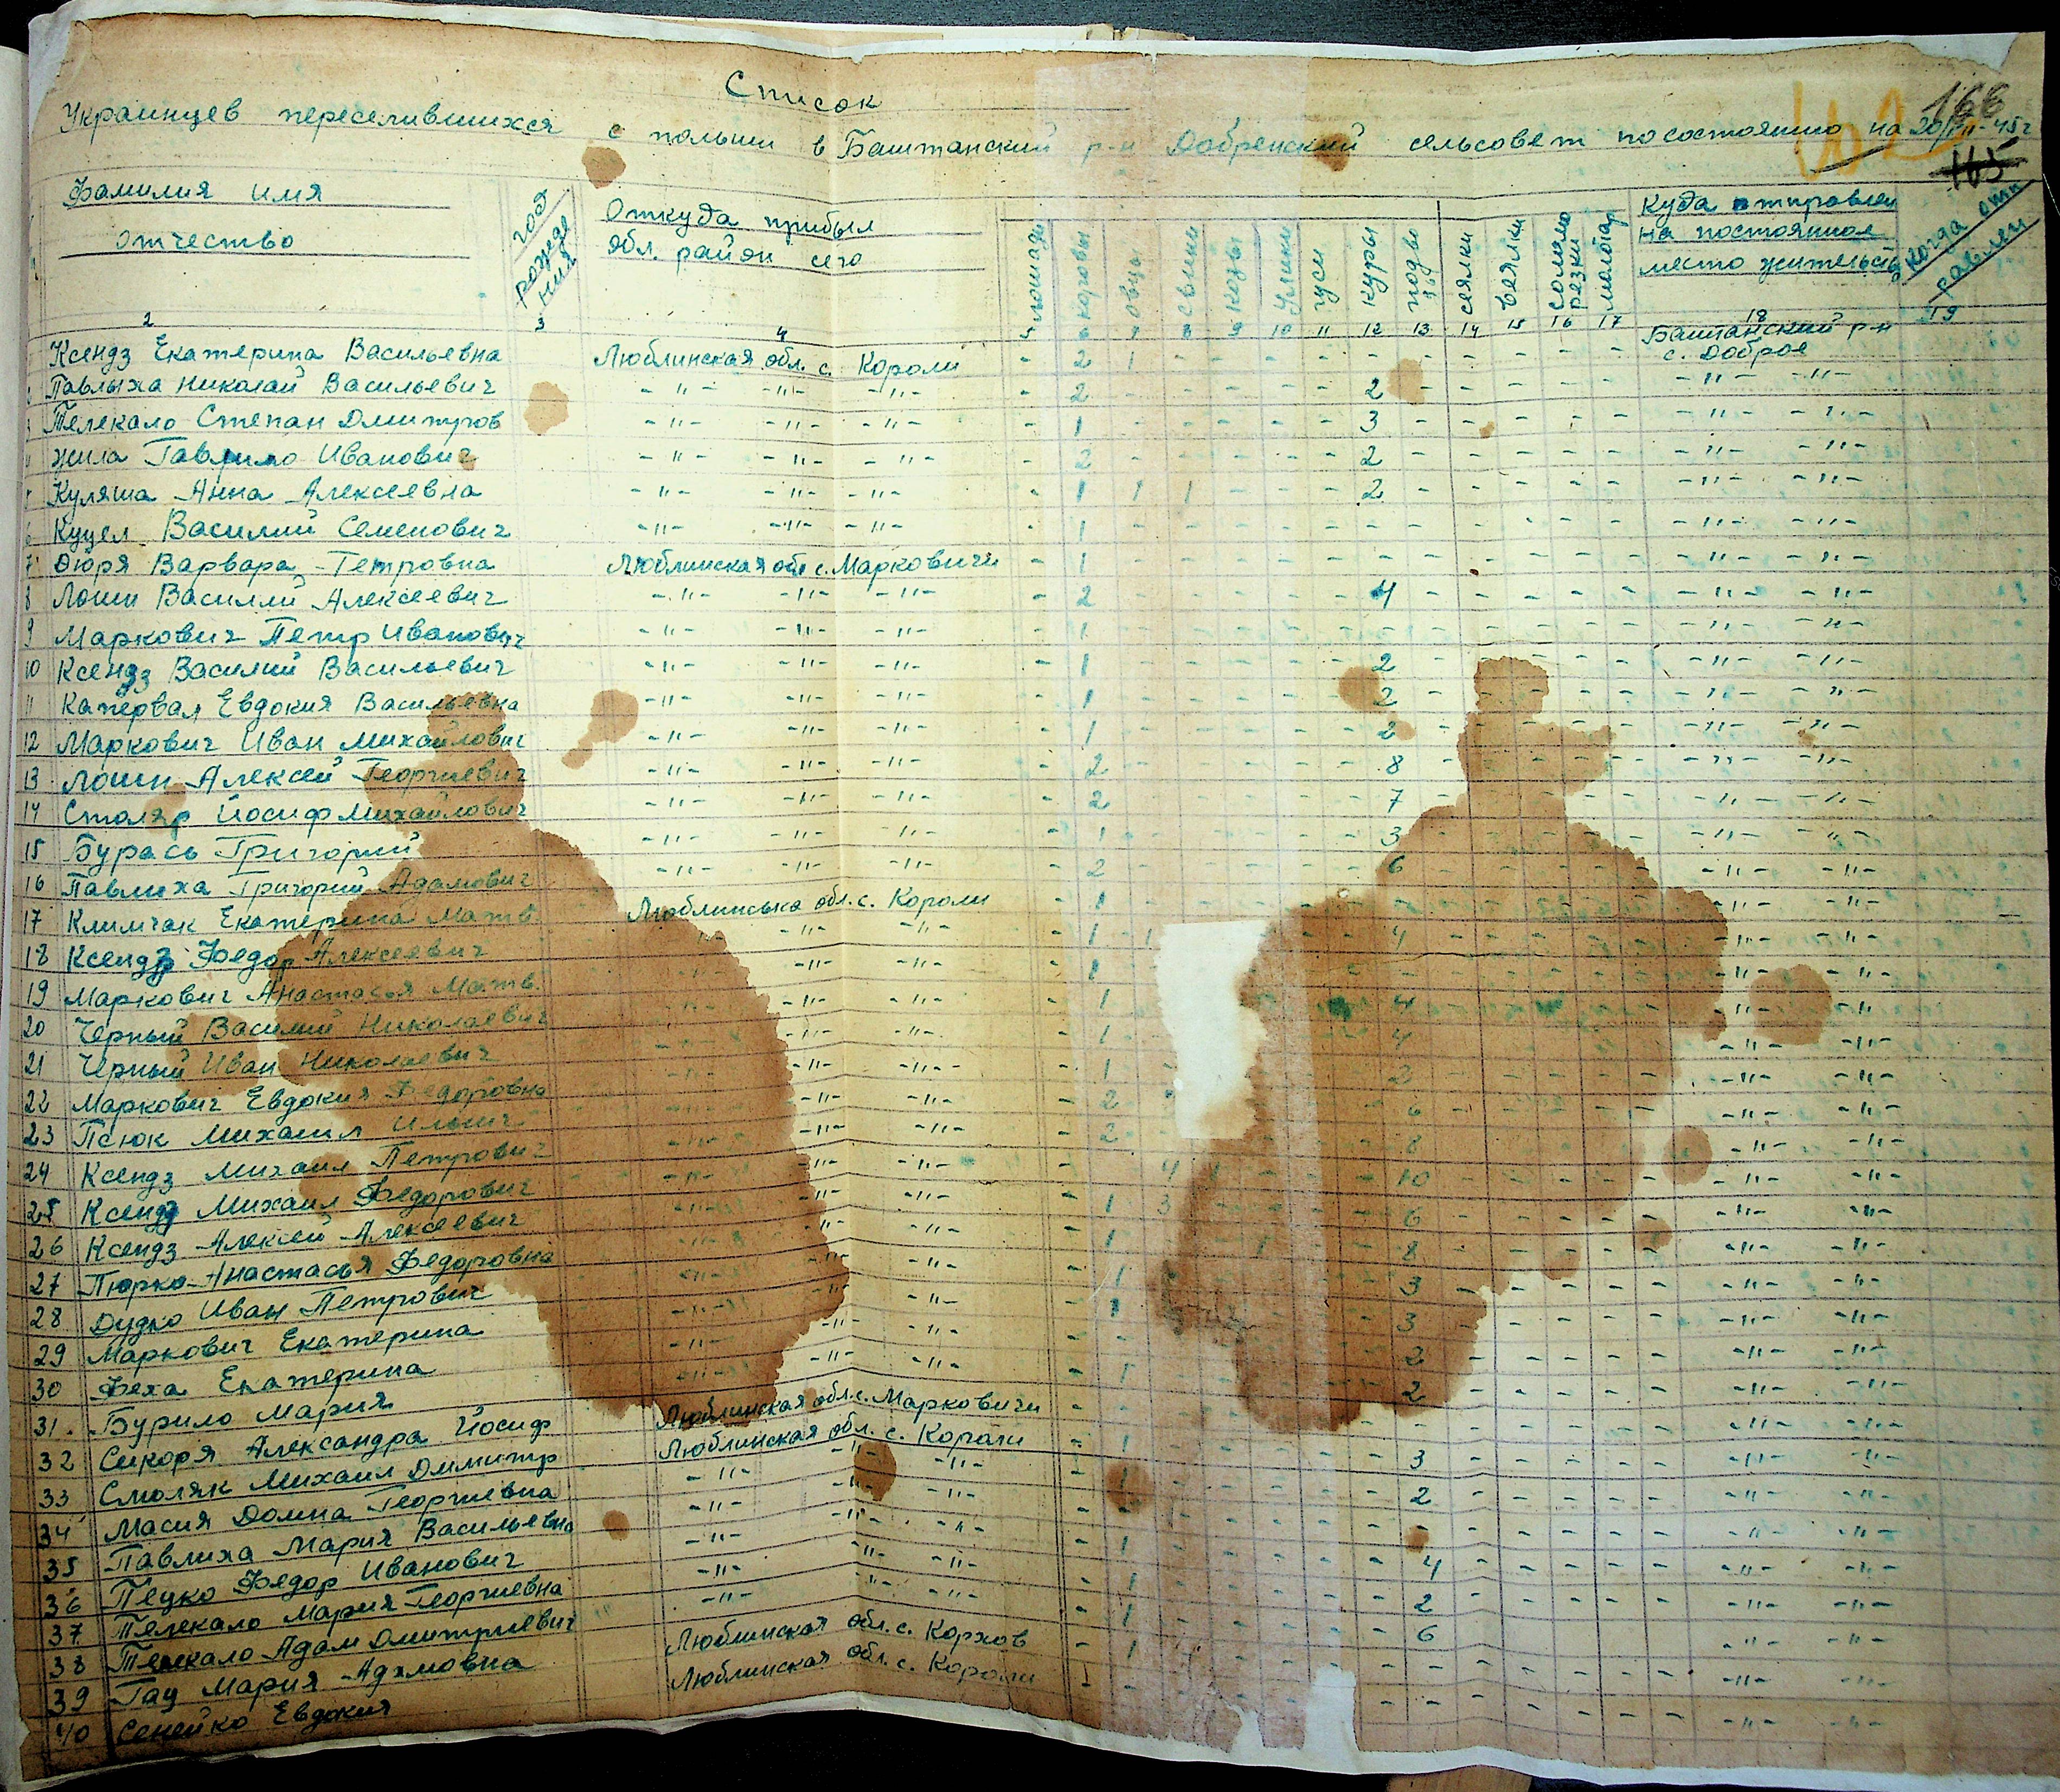 Список
166
Украинцев переселившихся с польши в Баштанский р-н Добренский сельсовет посостоянию на 20/VII-45г
165
Фамилия имя отчество
год рождения
Откуда прибыл обл. район село
лошади коровы овцы свиньи козы гуси куры сеялки веялки
Куда отправлен на постоянное место жительств
когда отправлен
2 3 4 7 8 9 10 11 12 13 14 15 16 17 18 19
Ксендз Екатерина Васильевна Люблинская обл. с. Короли - 2 1 - - - - - - - - - - Баштанский р-н с. Доброе
Павлыха Николай Васильевич -"- -"- -"- - 2 2 -"- -"-
Телекало Степан Дмитров -"- -"- -"- - 1 3 -"- -"-
4 жила Гаврило Иванович -"- -"- -"- - 2 2 -"- -"-
Куляша Анна Алексеевна -"- -"- -"- - 1 1 1 2 -"- -"-
6 Куцел Василий Семенович -"- -"- -"- - 1 -"- -"-
7 Дюря Варвара Петровна Люблинская обл с. Марковичи - 1 -"- -"-
8 Лошн Василий Алексеевич -"- -"- -"- - 2 4 -"- -"-
9 Маркович Петр Иванович -"- -"- -"- - 1 -"- -"-
10 Ксендз Василий Васильевич -"- -"- -"- - 1 2 -"- -"-
11 Капервал Евдокия Васильевна -"- -"- -"- - 1 2 -"- -"-
12 Маркович Иван Михайлович -"- -"- -"- - 1 2 -"- -"-
13 Лошн Алексей Георгиевич -"- -"- -"- - 2 8 -"- -"-
14 Столяр Йосиф Михайлович -"- -"- -"- - 2 7 -"- -"-
15 Бурась Григорий -"- -"- -"- - 1 3 -"- -"-
16 Павлиха Григорий Адамович -"- -"- -"- - 2 6 -"- -"-
17 Климчак Екатерина Матв. Люблинська обл. с. Короли - 1 -"- -"-
18 Ксендз Федор Алексеевич -"- -"- - 1 4 -"- -"-
19 Маркович Анастасья Матв. -"- -"- - 1 -"- -"-
20 Черный Василий Николаевич -"- -"- -"- - 1 4 -"- -"-
21 Черный Иван Николаевич -"- -"- -"- - 1 4 -"- -"-
22 Маркович Евдокия Федоровна -"- -"- -"- - 1 -"- -"-
23 Псюк Михаил Ильич -"- -"- -"- - 2 6 -"- -"-
24 Ксендз Михаил Петрович -"- -"- -"- - 2 8 -"- -"-
25 Ксендз Михаил Федорович -"- -"- -"- 4 1 10 -"- -"-
26 Ксендз Алексей Алексеевич -"- -"- -"- - 1 3 6 -"- -"-
27 Пюрко Анастасья Федоровна -"- -"- -"- - 1 1 8 -"- -"-
28 Дудко Иван Петрович -"- -"- -"- - 1 3 -"- -"-
29 Маркович Екатерина -"- -"- -"- - 1 3 -"- -"-
30 Феха Екатерина -"- -"- -"- - 2 -"- -"-
31. Бурило Мария -"- -"- -"- - 1 2 -"- -"-
32 Сикоря Александра Йосиф Люблинская обл. с. Марковичи - -"- -"-
33 Смоляк Михаил Димитр Люблинская обл. с. Короли - 1 3 -"- -"-
34 Масия Домна Георгиевна -"- -"- -"- - 1 2 -"- -"-
35 Павлиха Мария Васильевна -"- -"- -"- - -"- -"-
36 Пецко Федор Иванович -"- -"- -"- - 1 4 -"- -"-
37 Телекало Мария Георгиевна -"- -"- -"- - 1 2 -"- -"-
38 Телекало Адам Дмитриевич -"- -"- -"- - 1 6 -"- -"-
39 Гац Мария Адамовна Люблинская обл. с. Корхов - 1 -"- -"-
40 Сенейко Евдокия Люблинская обл. с. Короли -"- -"-